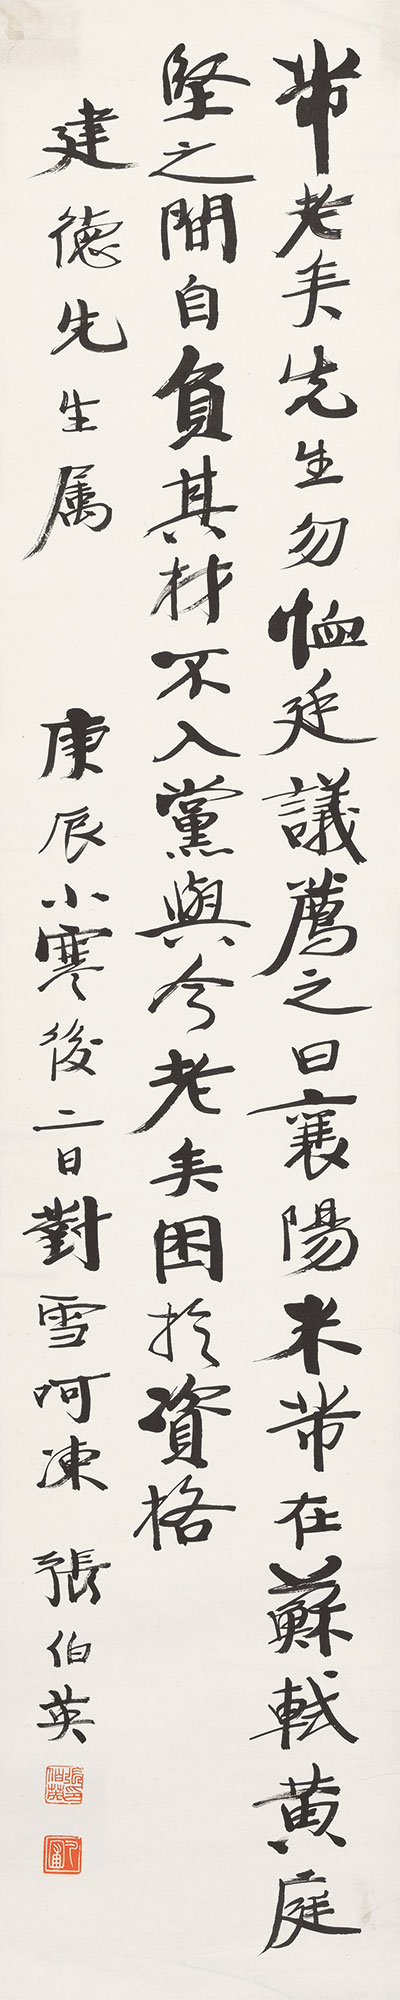 芾老矣先生勿恤廷議薦之曰襄陽米芾在蘇軾黄庭
堅之間自負其材不入黨與今老矣困於資格
建德先生属 庚辰小寒後二日對雪呵凍 張伯英
張印伯英